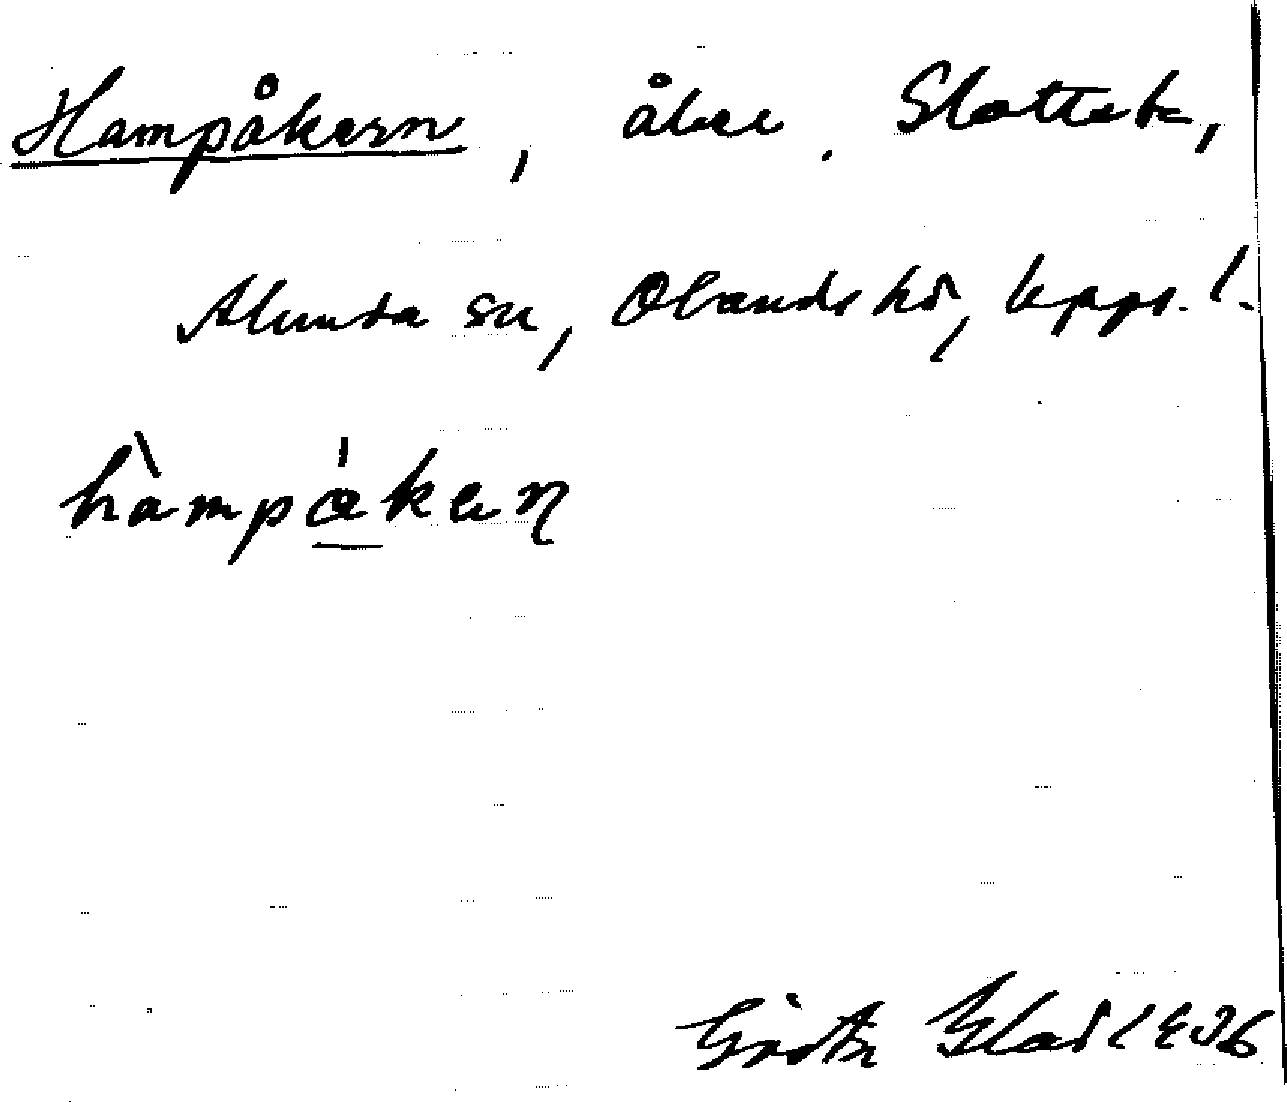 Hampåkern, åker. Slottet,
Alunda sn, Olands hd, Upps. l.
hàmpåkaɳ
Gösta Glad 1936